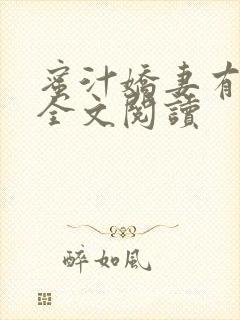 蜜汁嬌妻有
全文閱讀
醉如風